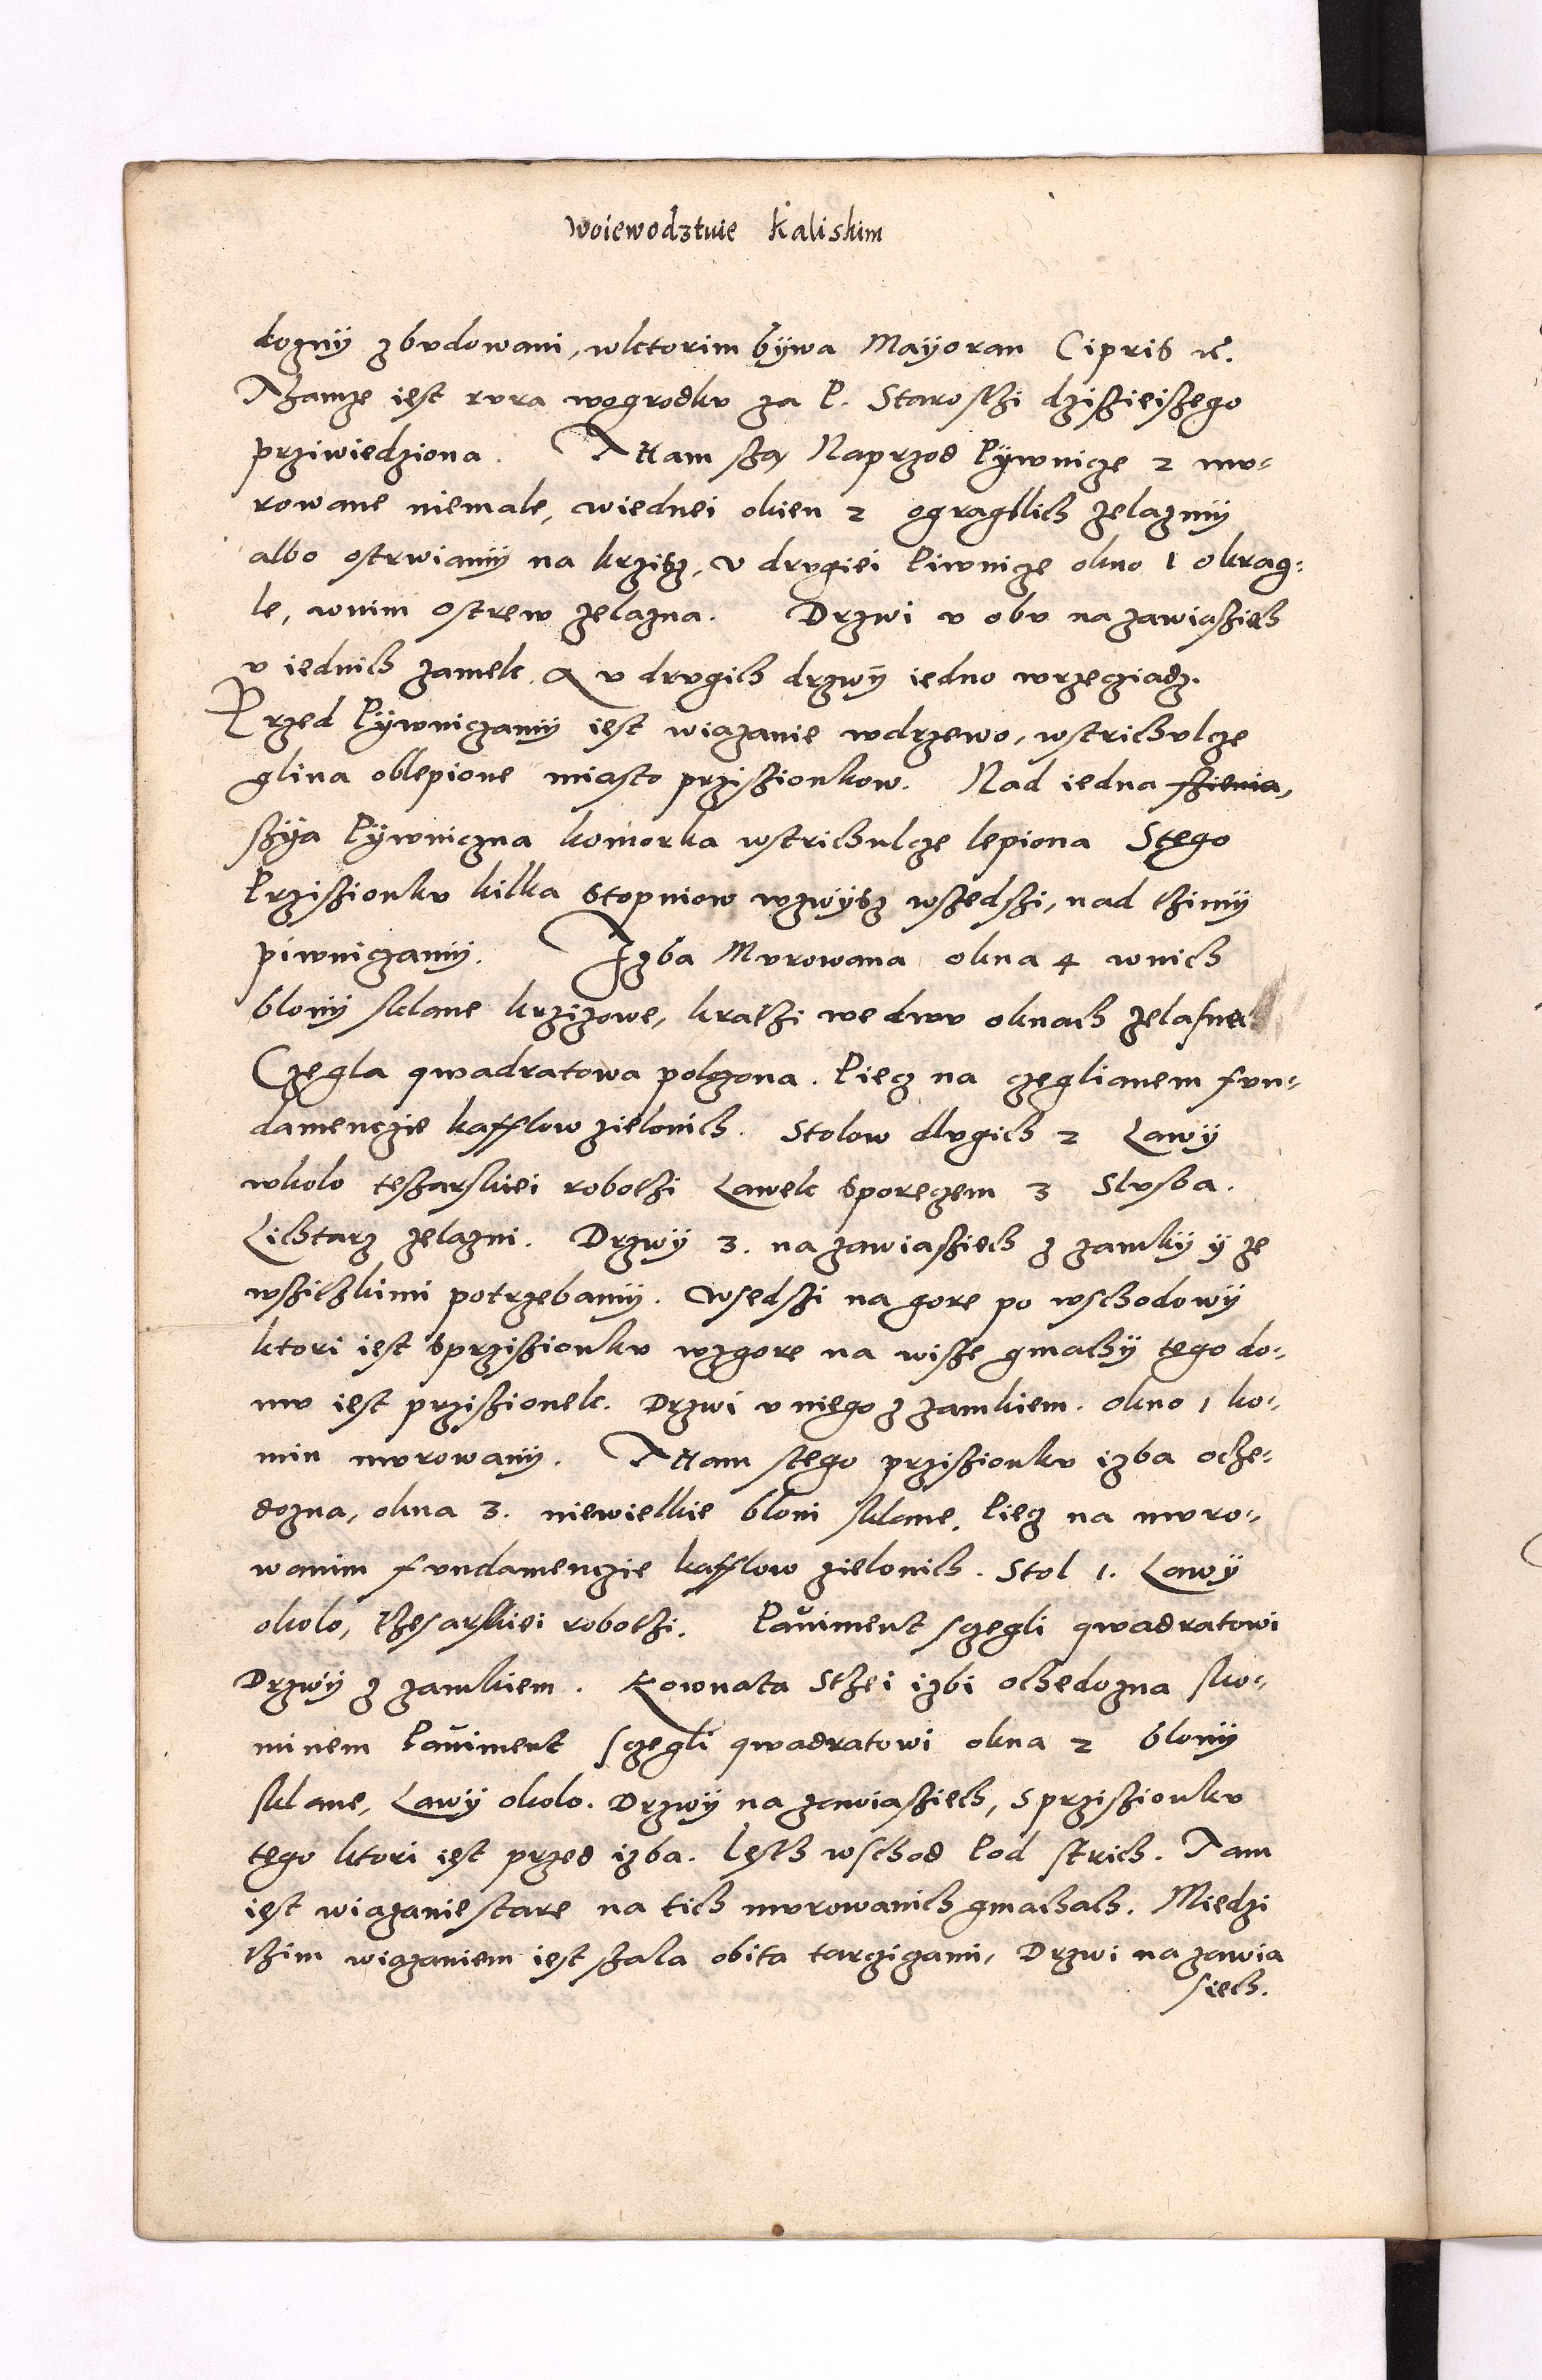 woiewodztwie Kaliskim
kozny zbvdowani, wktorim bÿwa Maÿoran Cipris ⁊c.
Thamze iest rvra wogrodkv za P. Starosthi dziszieiszego
prziwiedziona. A Ham sza Naprzod Pÿwnicze 2 mv-
rowane niemale, wiednei okien 2 ogragllich zelazmÿ
albo ostrwiamÿ na krzisz, v drvgiei Piwnicze okno 1 okrag-
le, wnim ostrew zelazna. Drzwi v obv na zawiasziech
v iednich zamek. A v drvgich drzwÿ iedno wrzecziadz.
Przed Pÿwniczamÿ iest wiazanie wdrzewo, wstrichvlcze
glina oblepione miasto prziszionkow. Nad iedna szienia,
szÿa Pÿwniczna komorka wstrichulcze lepiona Stego
Prziszionkv kilka Stopniow wzwÿsz wszedszi, nad thimÿ
piwniczamÿ. Izba Mvrowana okna 4 wnich
blonÿ sklane krzizowe, krathi we dwv oknach zelasnech
Czegla qwadratowa polozona. Piecz na czeglianem fvn-
damenczie kafflow zielonich. Stolow dlvgich 2 Lawÿ
wkolo teszarskiei robothi Lawek Sporeczem 3 Slvsba.
Lichtarz zelazni. Drzwÿ 3. na zawiasziech z zamkÿ ÿ ze
wszithkimi potrzebamÿ. Wsedszi na gore po wschodowÿ
ktori iest Sprziszionkv wzgore na wisze gmachÿ tego do-
mv iest prziszionek. Drzwi v niego z zamkiem. okno 1 ko-
min mvrowanÿ. A Ham stego prziszionkv izba oche-
dozna, okna 3. niewielkie bloni sklane. Piecz na mvro-
wanim fvndamenczie kafflow zielonich. Stol 1. Lawÿ
okolo, thesarskiei robothi. Paviment sczegli qwadratowi
Drzwÿ z zamkiem. Kownata Sthei izbi ochedozna sko-
minem Paviment sczegli qwadratowi okna 2 blonÿ
sklane, Lawÿ okolo. Drzwÿ na zawiasziech, S prziszionkv
tego ktori iest przed izba. Iesth wschod Pod strich. Tam
iest wiazanie stare na tich mvrowanich gmachach. Miedzi
thim wiazaniem iest szala obita tarczizami, Drzwi na zawia
siech.